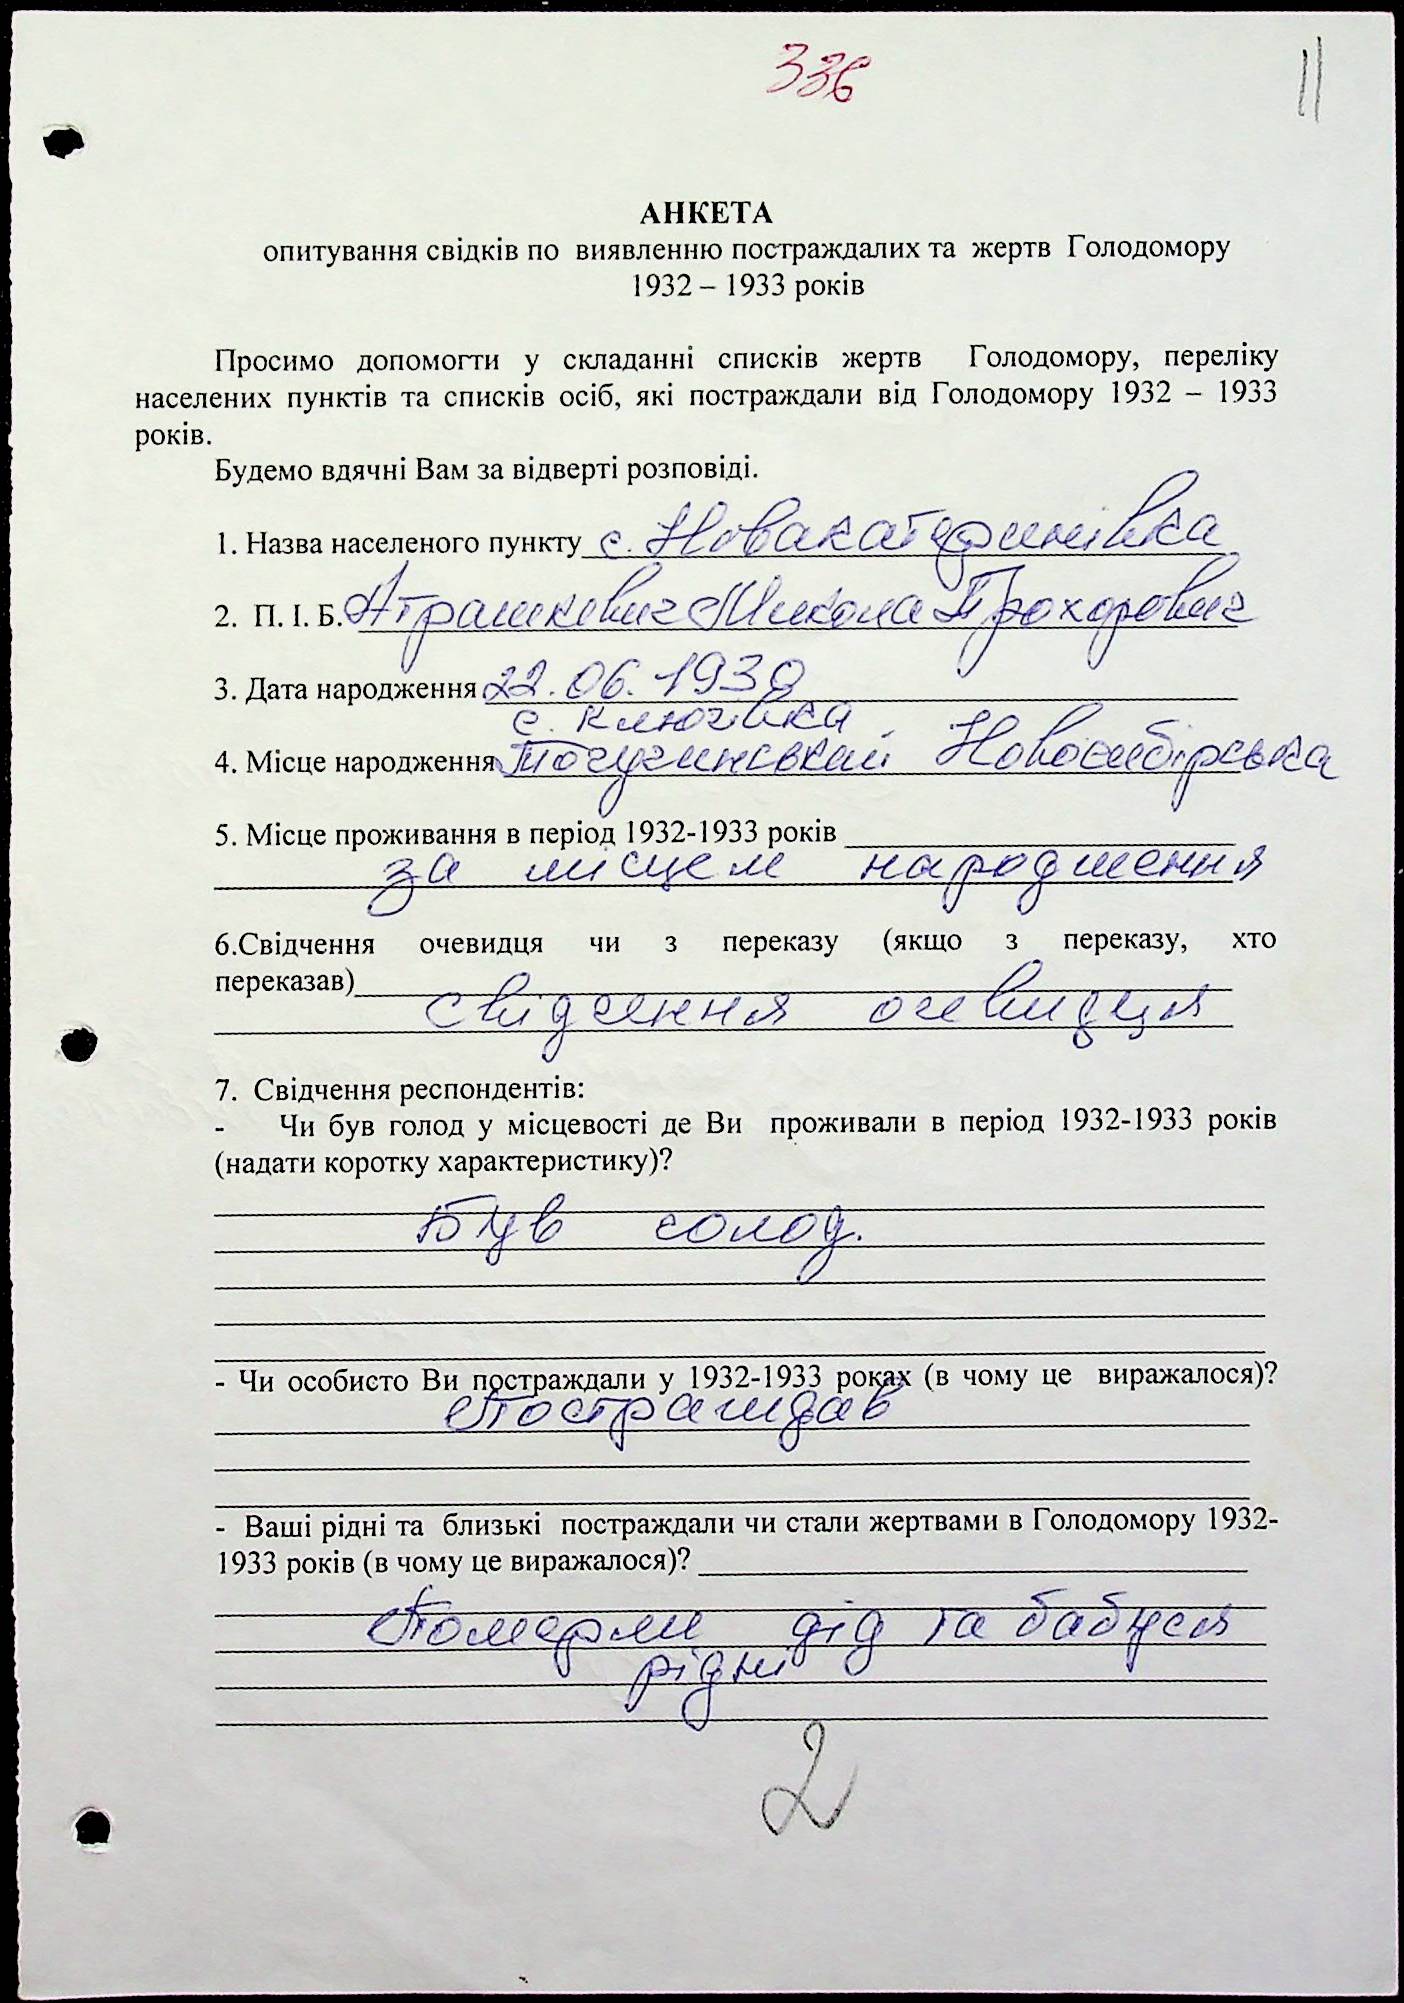 336
11
АНКЕТА
опитування свідків по виявленню постраждалих та жертв Голодомору
1932 – 1933 років
Просимо допомогти у складанні списків жертв Голодомору, переліку
населених пунктів та списків осіб, які постраждали від Голодомору 1932 – 1933
років.
Будемо вдячні Вам за відверті розповіді.
1. Назва населеного пункту с. Новакатеринівка
2. П. І. Б. Атрашкевич Микола Прохорович
3. Дата народження 22.06.1930
с. Ключівка
4. Місце народження Тогучинський Новосибірська
5. Місце проживання в період 1932-1933 років
за місцем народження
6.Свідчення очевидця чи з переказу (якщо з переказу, хто
переказав)
свідчення очевидця
7. Свідчення респондентів:
- Чи був голод у місцевості де Ви проживали в період 1932-1933 років
(надати коротку характеристику)?
Був голод.
- Чи особисто Ви постраждали у 1932-1933 роках (в чому це виражалося)?
Постраждав
- Ваші рідні та близькі постраждали чи стали жертвами в Голодомору 1932-
1933 років (в чому це виражалося)?
Померли дід та бабуся
рідні
2